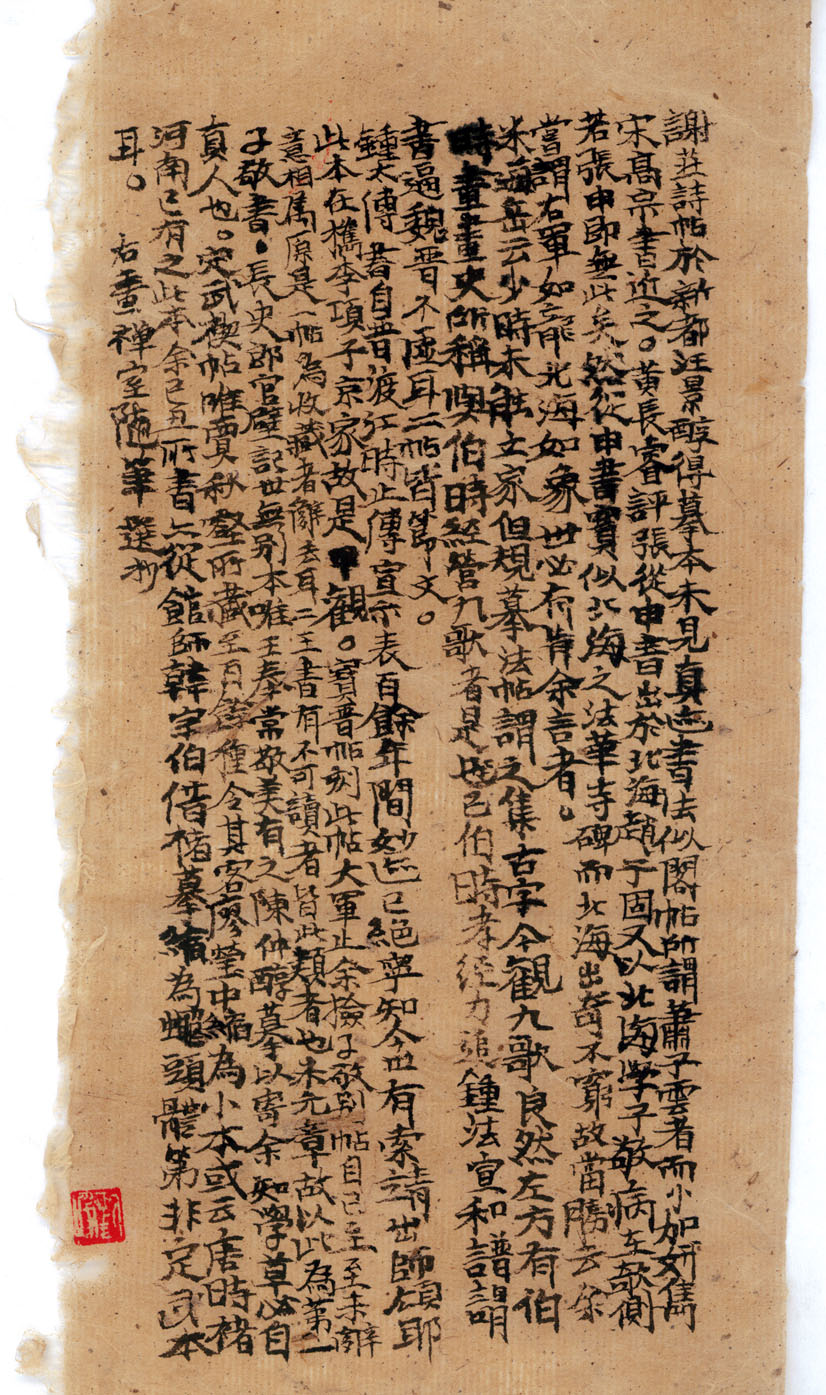 謝莊詩帖於新都汪景醇得摹本未見真迹書法似閣帖所謂蕭子雲者而小加妍雋
宋髙宗書近之。黃長睿評張從申書出於北海趙子固又以北海學子敬病在欹側
若張申即無此矣然從申書實似北海之法華寺碑而北海出奇不窮故當勝云余
嘗謂右軍如龍北海如象世必有肯余言者。
米海岳云少時未能立家但規摹法帖謂之集古字今觀九歌良然左方有伯
時畫畫史所稱與伯時經營九歌者是也已伯時孝經力追鍾法宣和譜謂
書逼魏晋不虛耳二帖皆篤文。
鍾太傅書自晋渡江時止傅宣示表百餘年間妙迹已絕寧知今世有索靖出師頌耶
此本在檇李項子京家故是甲觀。寶晋帖刻此帖大軍止余撿子敬别帖自已至至未辭
意相属原是一帖為收藏者離去耳二王書有不可讀者皆此類者也米元章故以此為第一
子敬書。長史郎官壁記世無别本唯王奉常敬美有之陳仲醇摹以寄余知學草必自
真人也。定武禊帖唯賈秋壑所藏至百餘種令其客廖瑩中縮為小本或云唐時褚
河南已有之此本余已丑所書亡從館師韓宗伯借褚摹縮為蠅頭體第非定武本
耳。 右畫禪室隨筆選抄